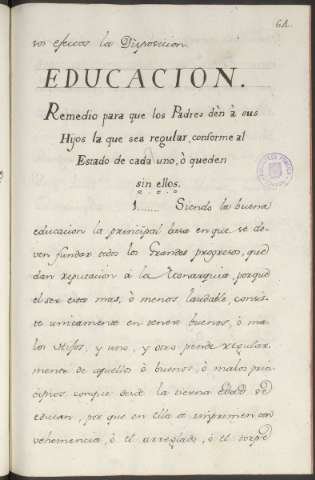 61.
vos efectos la Disposicion.
EDUCACION.
Remedio para que los Padres dèn à sus
Hijos la que sea regular, conforme al
Estado de cada uno, ò queden
sin ellos.
1....... Siendo la buena
educacion la principal basa en que se de-
ven fundar todos los Grandes progresos, que
dan reputacion à la Monarquia, porque
el ser estos mas, ò menos laudable, consis-
te unicamente en tener buenos, ò ma-
los Hijos, y uno, y otro pende regular-
mente de aquellos ò buenos, ò malos prin-
cipios conque desde la tierna Edad se
educan, por que en ella se imprimen con
vehemencia, ò el arreglado, ò el torpe